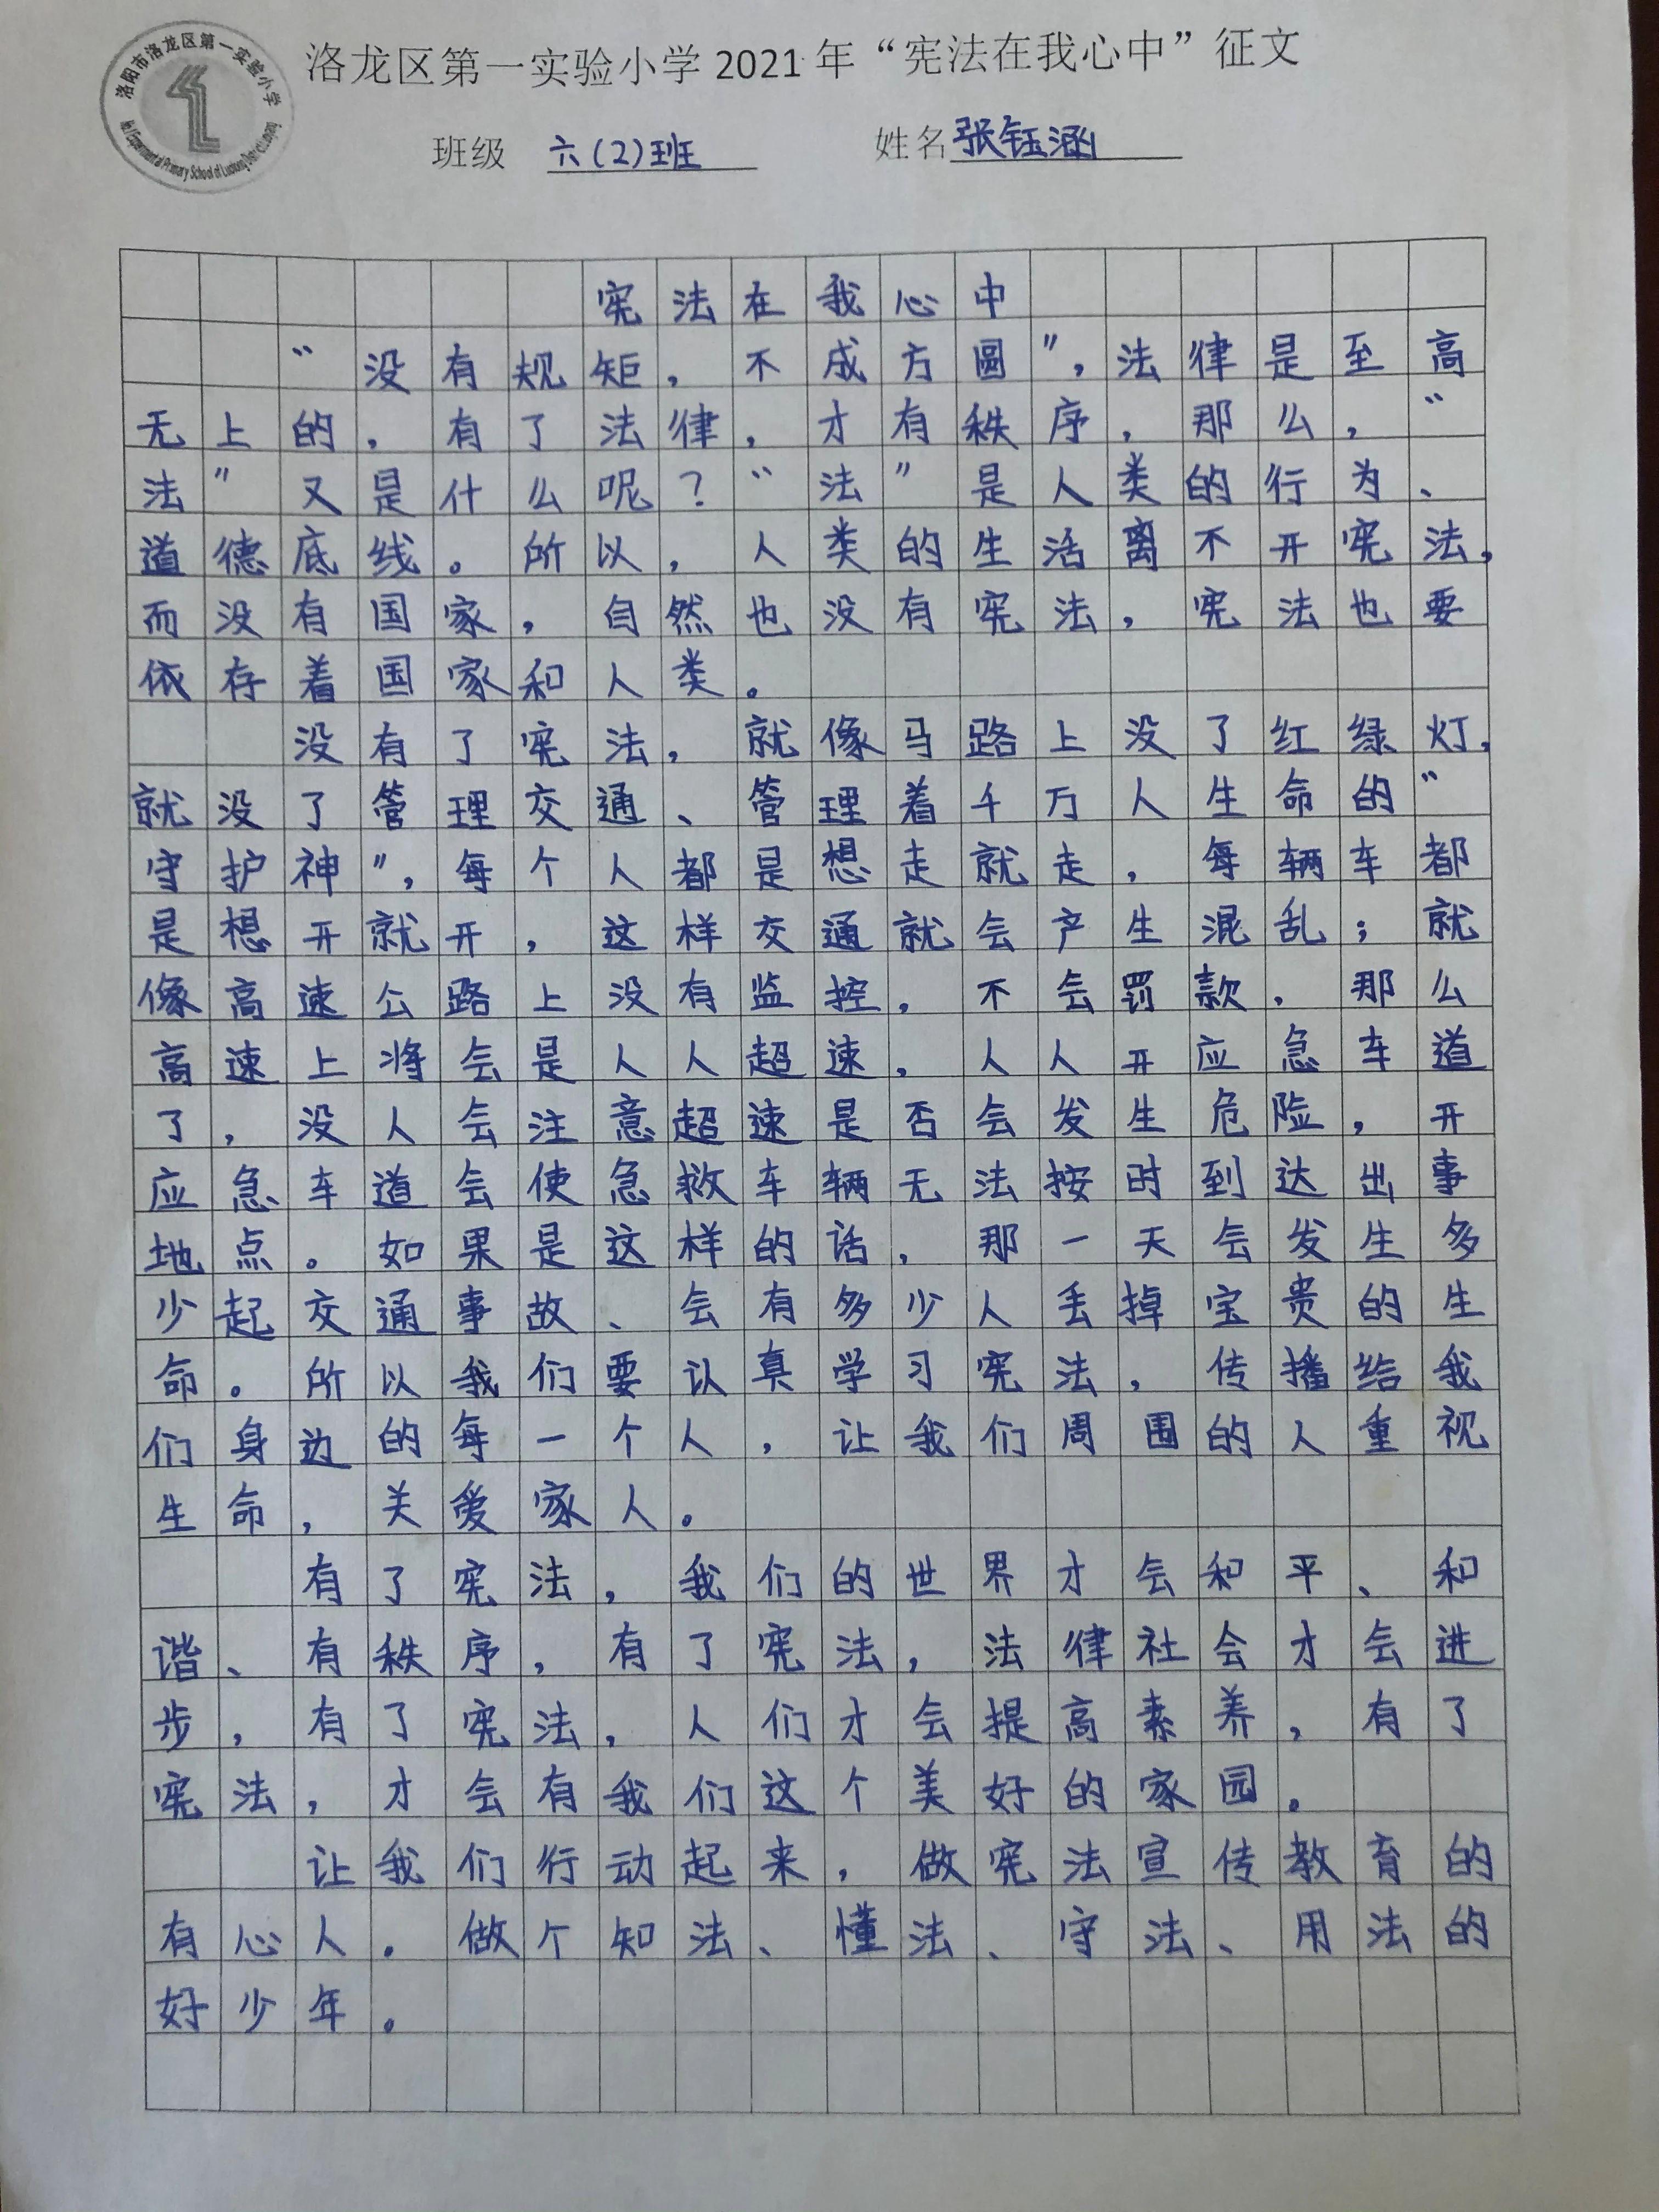 洛阳市洛龙区第一实验小学
洛龙区第一实验小学 2021 年“宪法在我心中”征文
班级 六(2)班 姓名 张钰涵
宪法在我心中
“没有规矩，不成方圆”，法律是至高
无上的，有了法律，才有秩序，那么，“
法”又是什么呢？“法”是人类的行为、
道德底线。所以，人类的生活离不开宪法，
而没有国家，自然也没有宪法，宪法也要
依存着国家和人类。
没有了宪法，就像马路上没了红绿灯，
就没了管理交通、管理着千万人生命的“
守护神”，每个人都是想走就走，每辆车都
是想开就开，这样交通就会产生混乱；就
像高速公路上没有监控，不会罚款，那么
高速上将会是人人超速，人人开应急车道
了，没人会注意超速是否会发生危险，开
应急车道会使急救车辆无法按时到达出事
地点。如果是这样的话，那一天会发生多
少起交通事故、会有多少人丢掉宝贵的生
命。所以我们要认真学习宪法，传播给我
们身边的每一个人，让我们周围的人重视
生命，关爱家人。
有了宪法，我们的世界才会和平、和
谐、有秩序，有了宪法，法律社会才会进
步，有了宪法，人们才会提高素养，有了
宪法，才会有我们这个美好的家园。
让我们行动起来，做宪法宣传教育的
有心人。做个知法、懂法、守法、用法的
好少年。